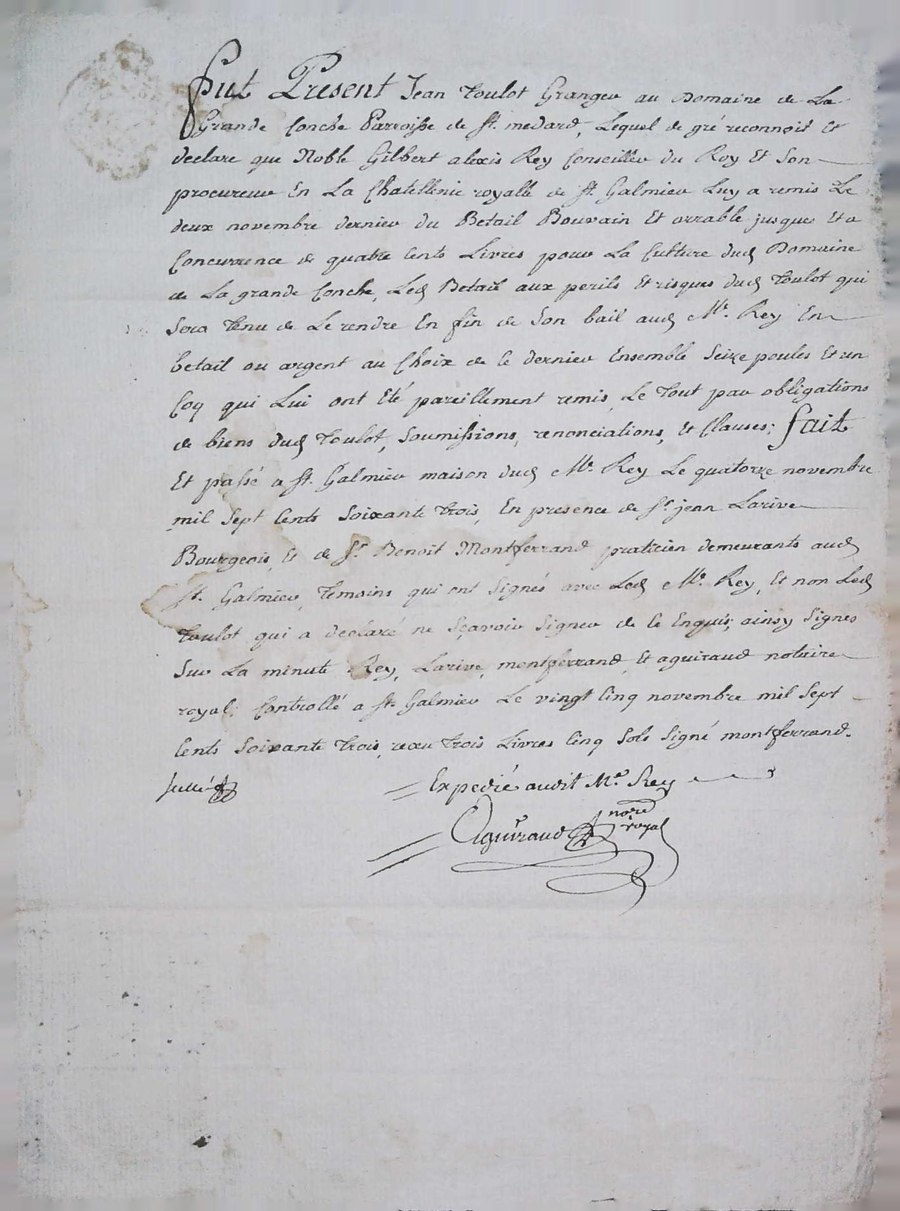 Fut Present Jean Toulot Granger au Domaine de La
Grande Conche Parroisse de St. medard, Lequel de gré reconnoit Et
declare que Noble Gilbert alexis Rey Conseiller du Roy Et Son
procureur En La Chatellenie royalle de St. Galmier Luy a remis Le
deux novembre dernier du Betail Bouvain Et arrable jusques Et a
Concurrence de quatre Cents Livres pour La Culture dud Domaine
de La grande Conche, Led Betail aux perils Et risques dud Toulot qui
Sera Tenu de Le rendre En fin de Son bail aud Mr. Rey En
betail ou argent au Choix de Ce dernier Ensemble Seize poules Et un
Coq qui Lui ont Eté pareillement remis, Le Tout par obligations
de biens dud Toulot, Soumissions, renonciations, Et Clauses; fait
Et passé a St. Galmier maison dud Mr. Rey Le quatorze novembre
mil Sept Cents Soixante Trois, En presence de Sr. jean Larive
Bourgeois, Et de Sr. Benoit Montferrand praticien demeurants aud
St. Galmier, Temoins qui ont Signés avec Led Mr. Rey, Et non Led
Toulot qui a declaré ne Sçavoir Signer de Ce Enquis, ainsy Signés
Sur La minute Rey, Larive, montferrand, Et aguiraud notaire
royal. Controllé a St. Galmier Le vingt Cinq novembre mil Sept
Cents Soixante Trois, reçu Trois Livres Cinq Sols Signé montferrand.
Expedié audit Mr. Rey
Aguiraud nore royal